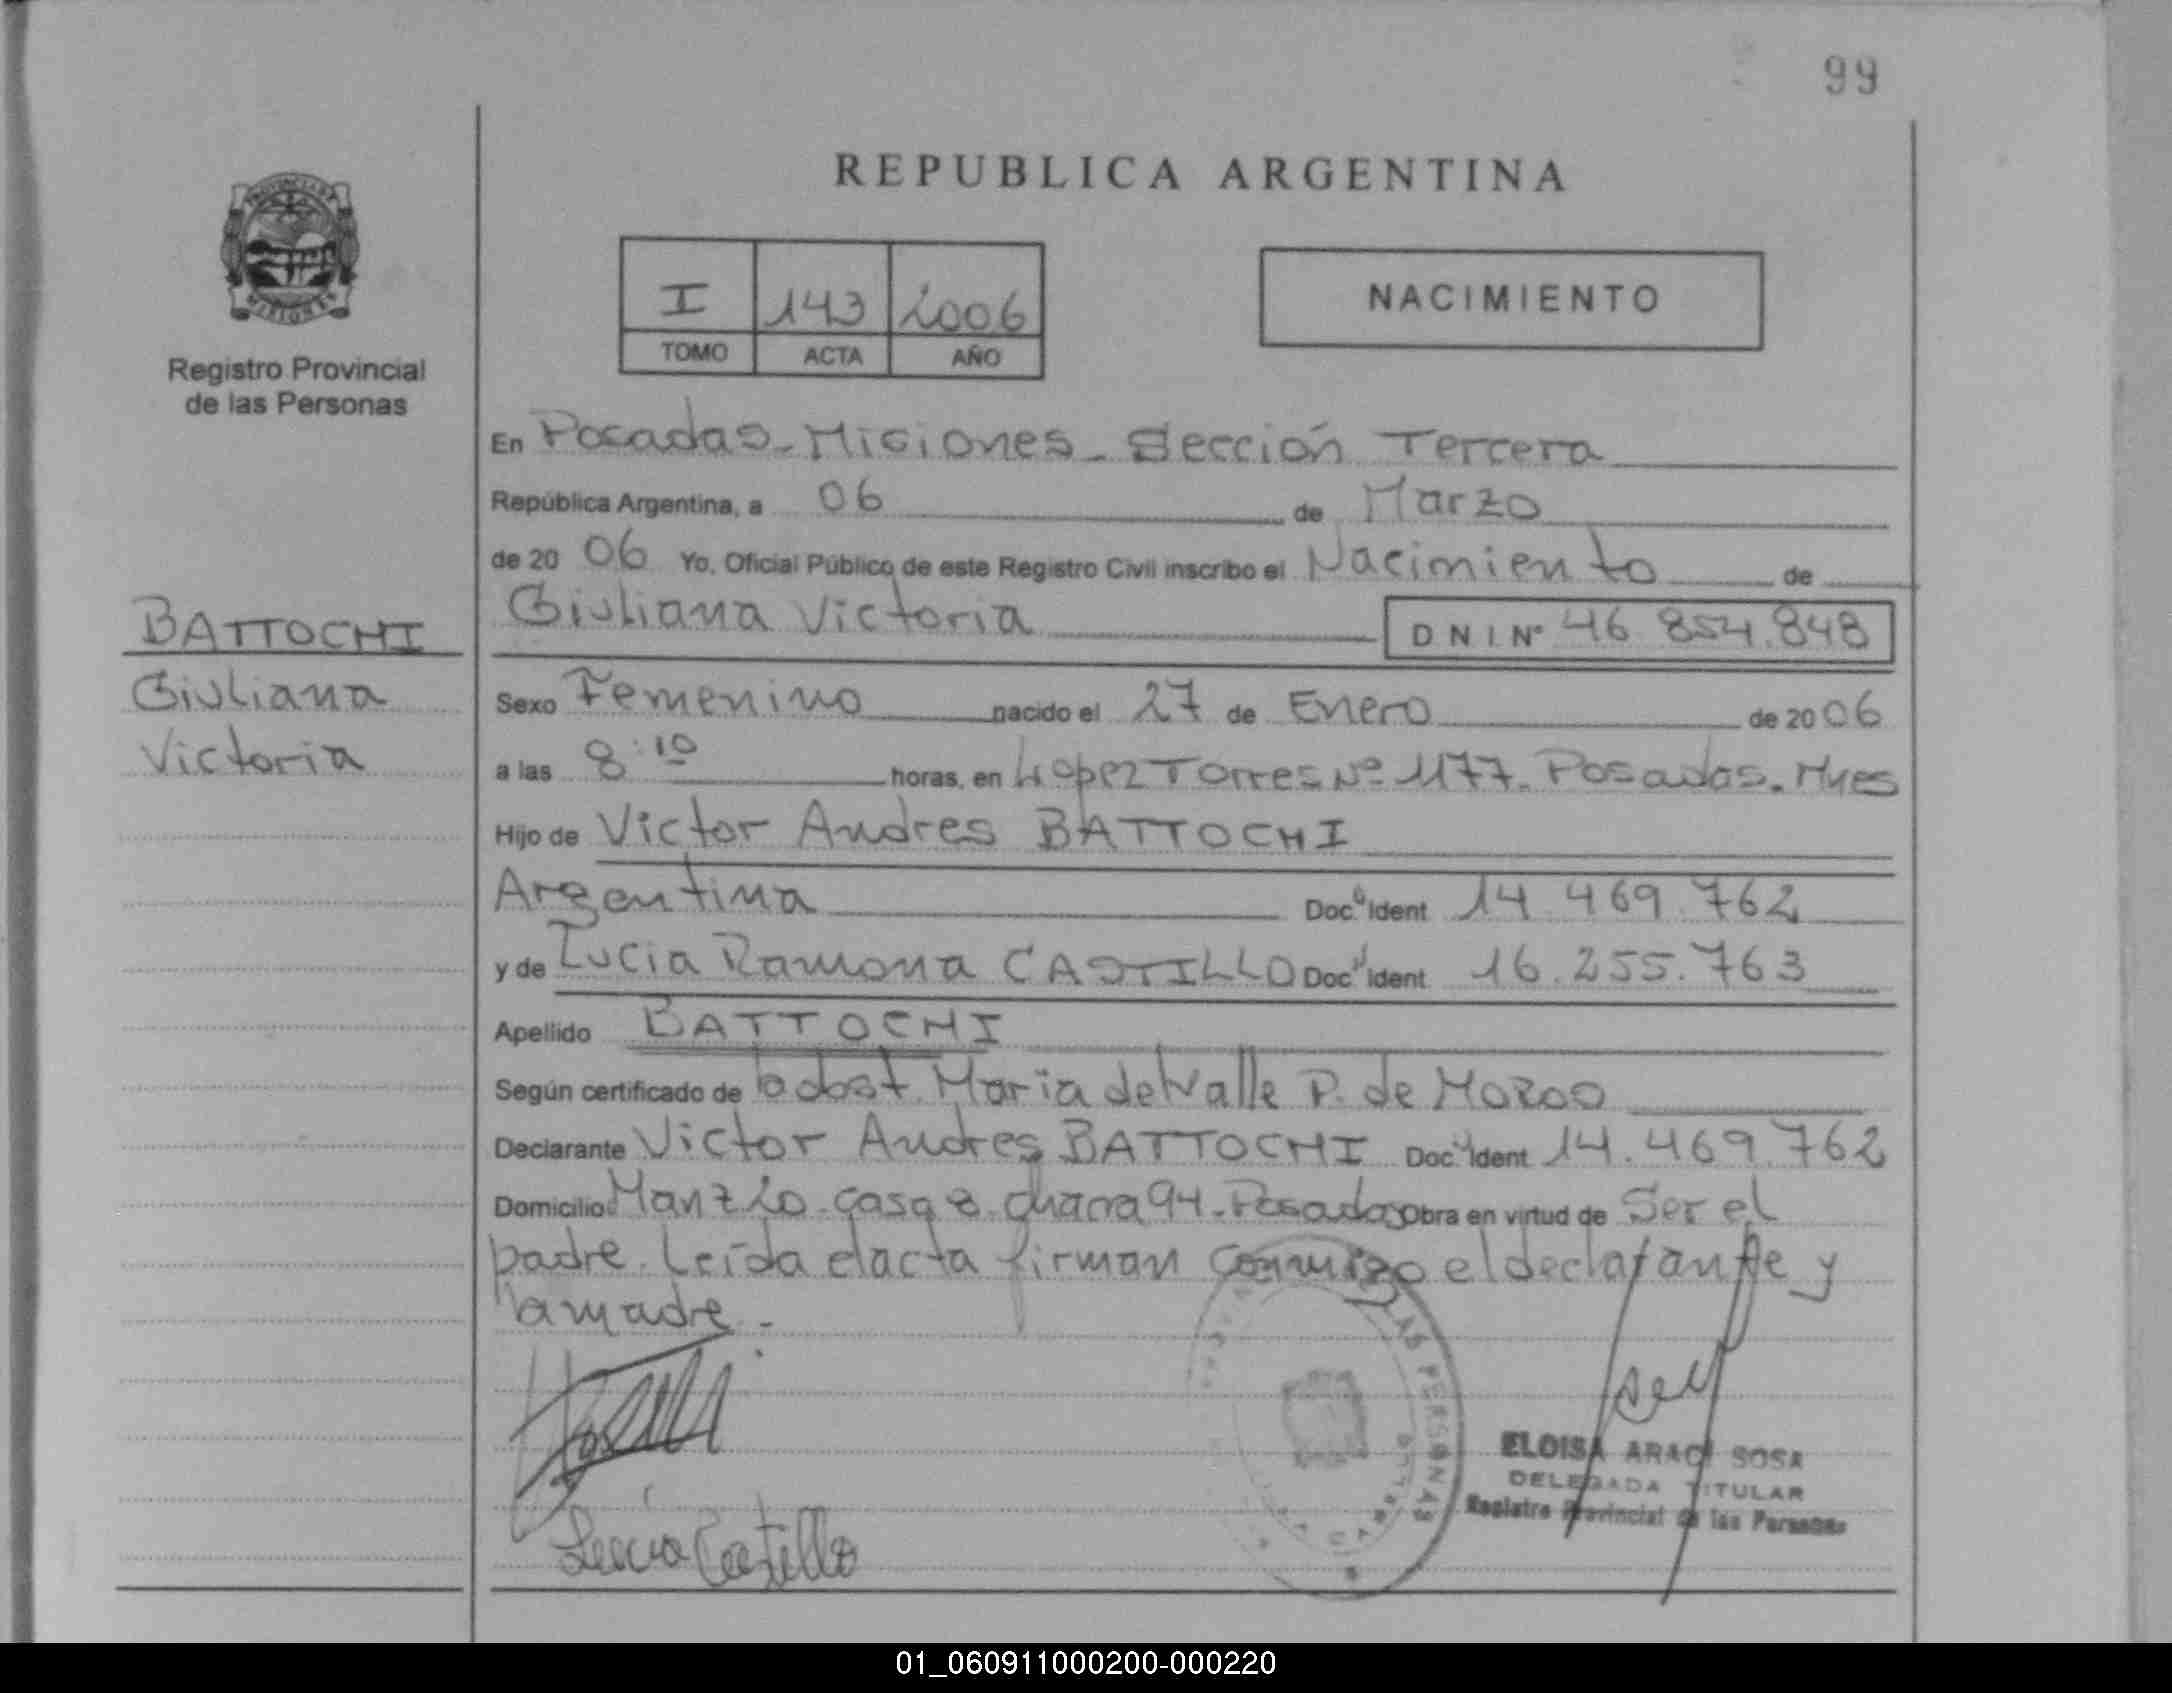 99
REPUBLICA ARGENTINA
I 143 2006
TOMO ACTA AÑO
NACIMIENTO
Registro Provincial
de las Personas
BATTOCHI
Giuliana
Victoria
En Posadas - Misiones - Sección Tercera
República Argentina, a 06 de Marzo
de 20 06 Yo, Oficial Público de este Registro Civil inscribo el Nacimiento de
Giuliana Victoria DNI Nº 46.854.848
Sexo Femenino nacido el 27 de Enero de 20 06
a las 8:10 horas, en Lopez Torres Nº 1177. Posadas. Mnes
Hijo de Victor Andres BATTOCHI
Argentina Doc. Ident 14.469.762
y de Lucia Ramona CASTILLO Doc. Ident 16.255.763
Apellido BATTOCHI
Según certificado de obst. Maria del Valle P. de
Declarante Victor Andres BATTOCHI Doc. Ident 14.469.762
Domicilio Manz 20 casa 8 chacra 94 - Posadas Obra en virtud de Ser el
padre. Leída el acta firman conmigo el declarante y
la madre.-
Lucia Castillo
LAS PERSONAS
ELOISA ARACI SOSA
DELEGADA TITULAR
Registro Provincial de las Personas
01_060911000200-000220